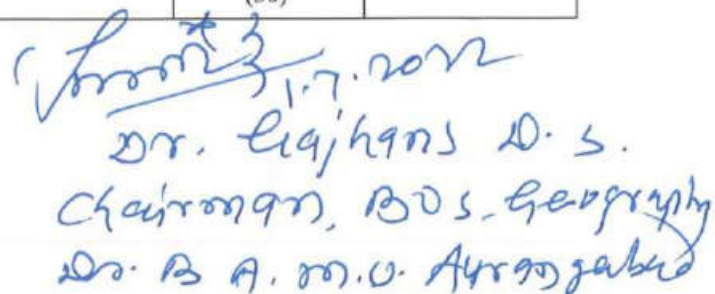 1.7.2022
Dr. Gajhans D. S.
Chairman, BOS, Geography
Dr. B A. M. U. Aurangabad